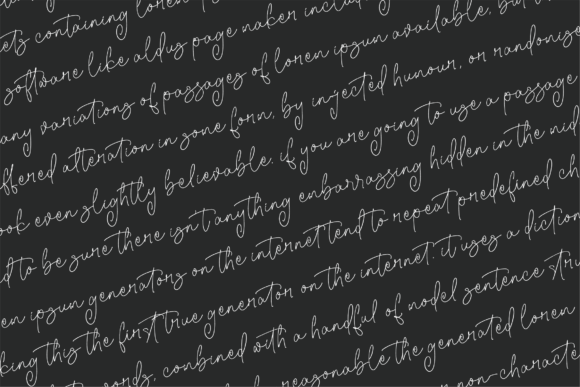 ets containing lorem
software like aldus page maker includ
any variations of passages of lorem ipsum available, but
ffered alteration in some form, by injected humour, or randomise
ook even slightly believable. if you are going to use a passage
d to be sure there isn't anything embarrassing hidden in the mid
em ipsum generators on the internet tend to repeat predefined ch
king this the first true generator on the internet. it uses a diction
words, combined with a handful of model sentence stru
reasonable the generated lorem
non-characte